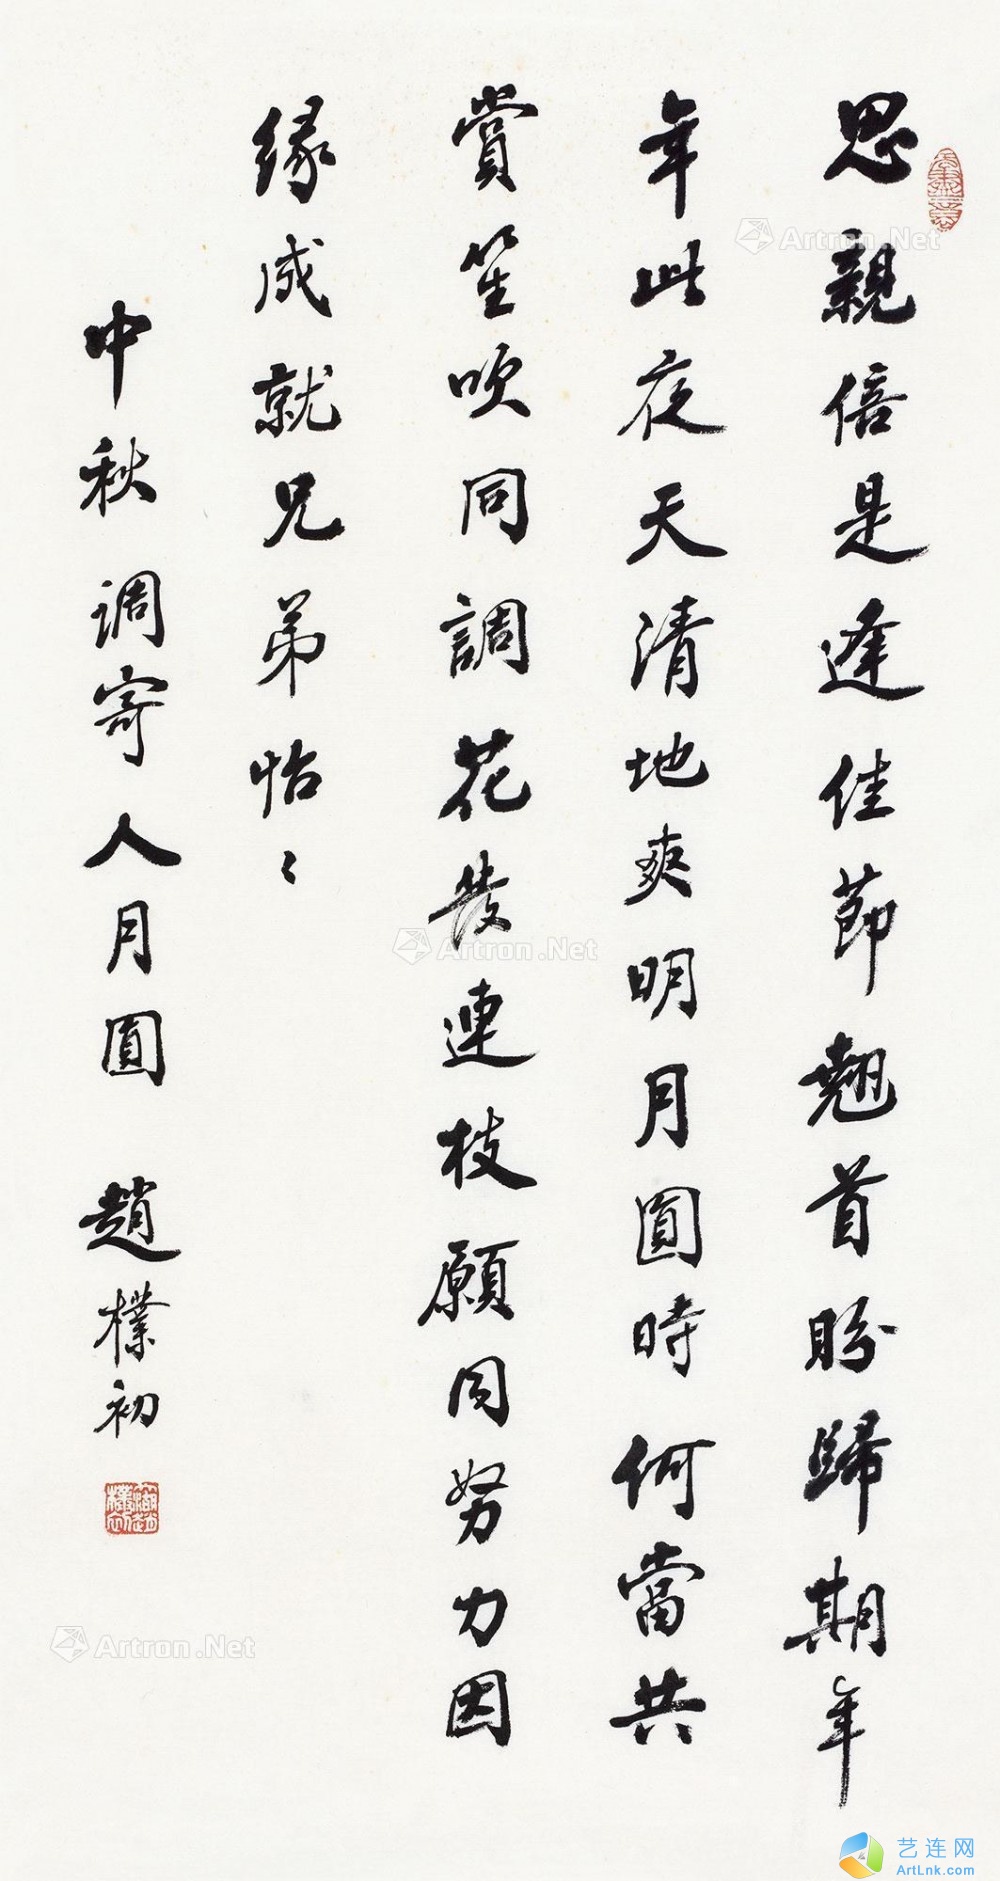 思親倍是逢佳節翹首盼歸期年
年此夜天清地爽明月圓時何當共
賞笙吹同調花發連枝願同努力因
緣成就兄弟怡〻
中秋 调寄人月圓 趙樸初
Artron.Net
Artron.Net
Artron.Net
艺连网
ArtLnk.com